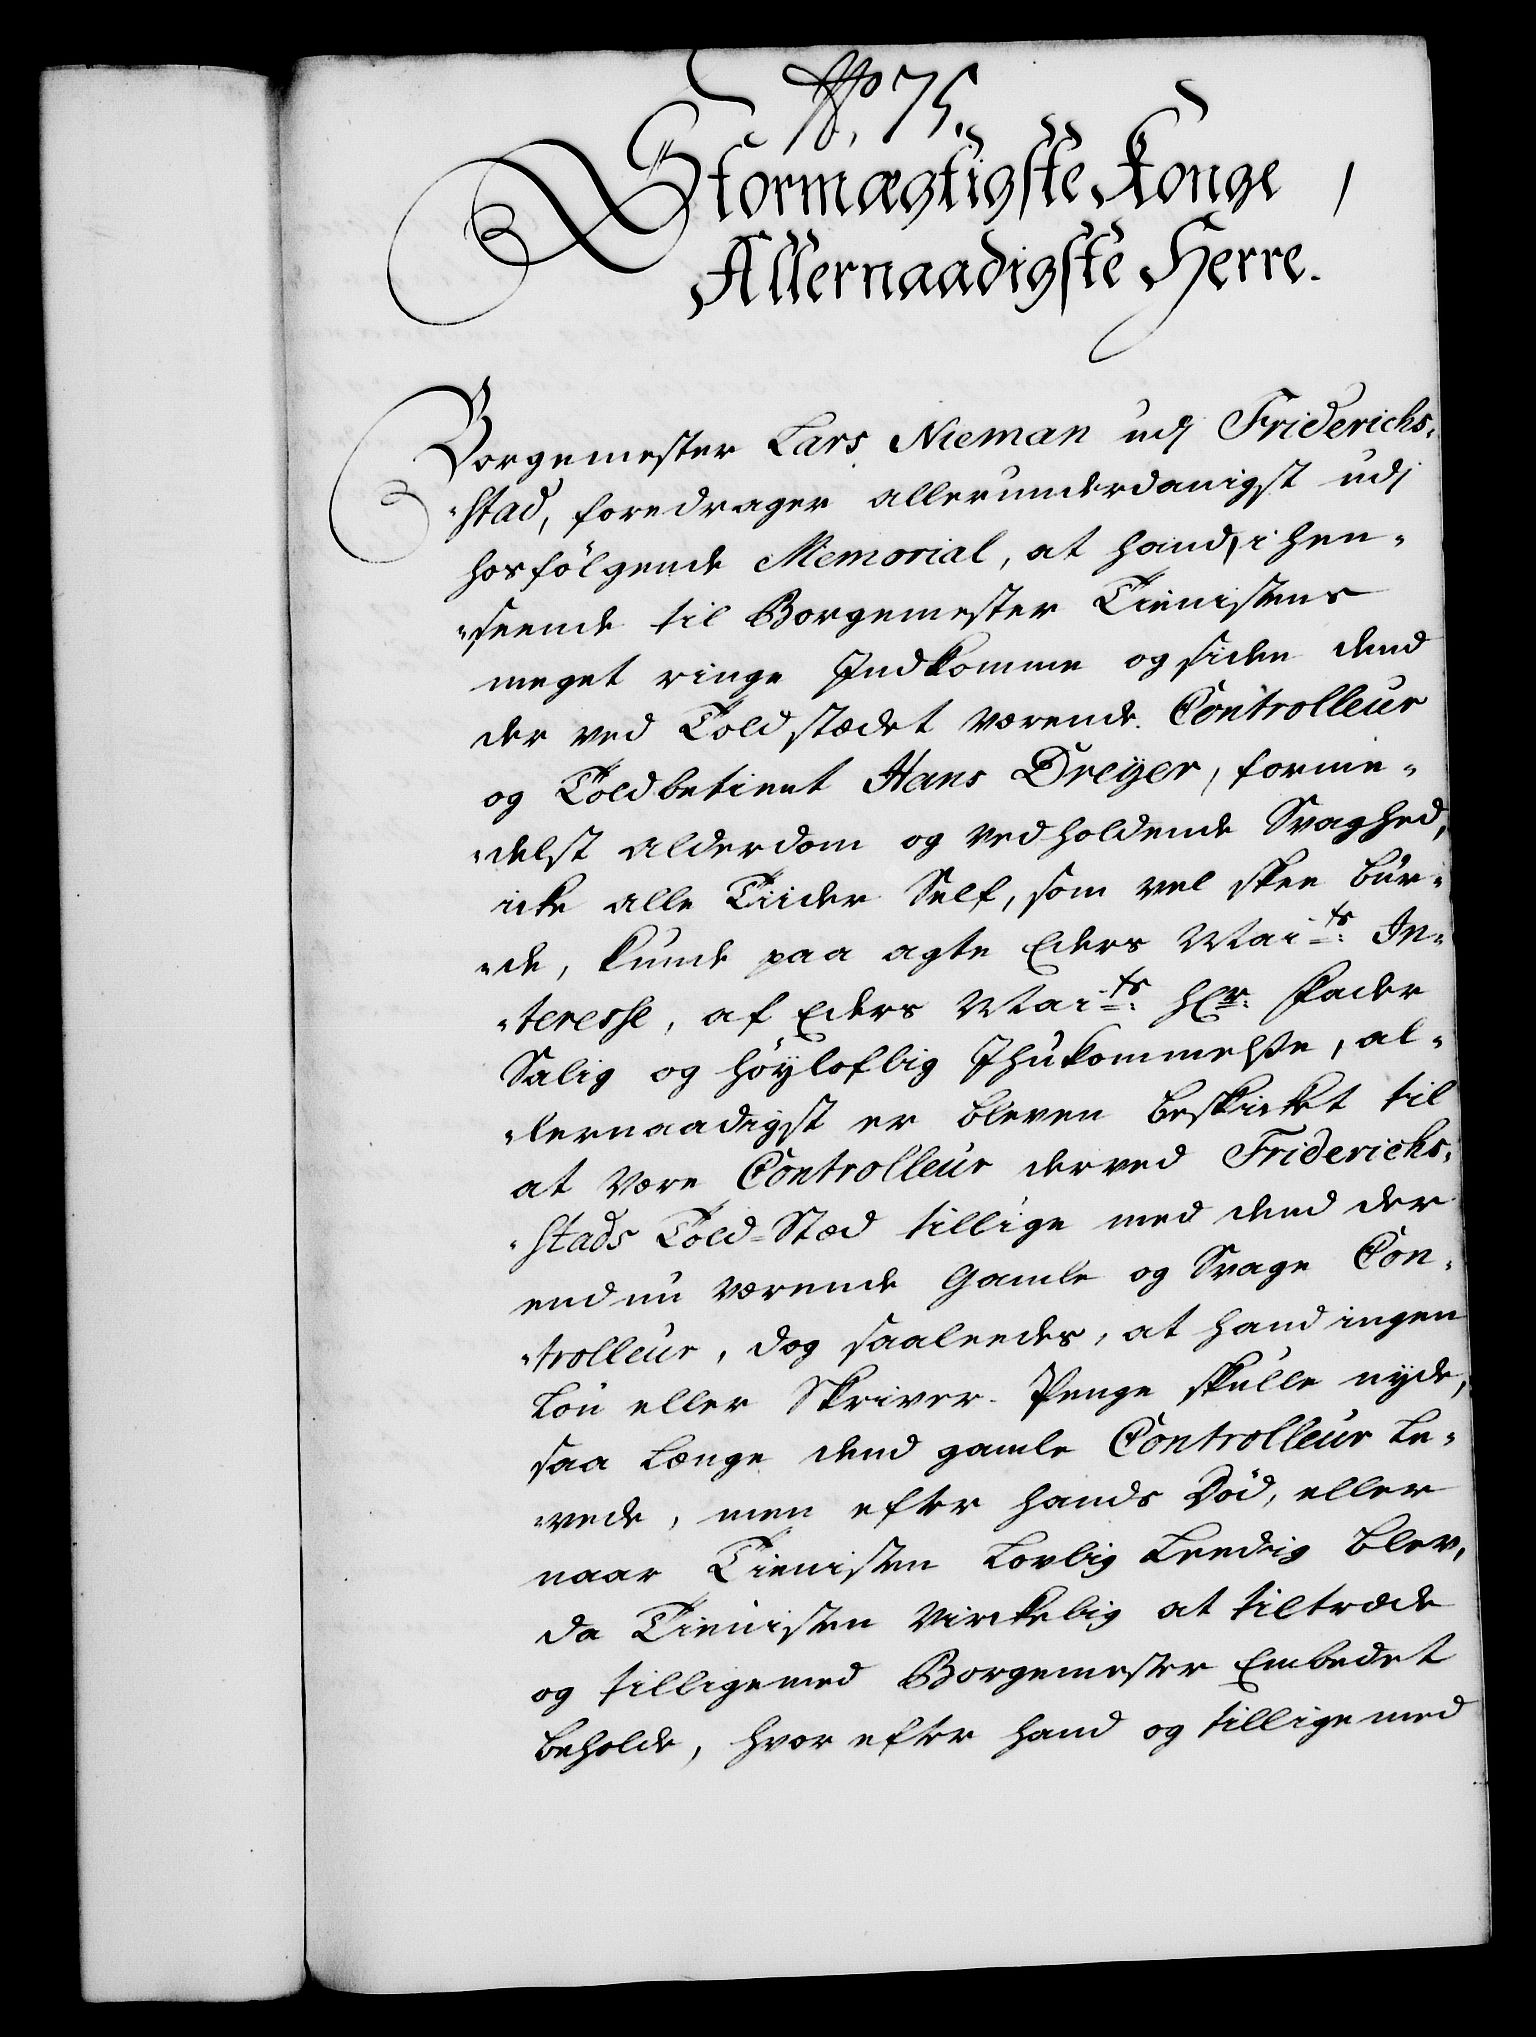 No. 75.
Stormægtigste Konge /
Allernaadigste Herre.
Borgemester Lars Nieman udj Friderichs-
-stad, foredrager allerunderdanigst udj
hosfölgende Memorial, at hand, i hen-
-seende til Borgemester Tienistens
meget ringe Indkomme og siden dend
der ved Toldstædet værende Controlleur
og Toldbetient Hans Dreÿer, forme-
-delst alderdom og vedholdende Svaghed,
icke alle Tiider Self, som vel skee bur-
-de, kunde paa agte Eders Maits: In-
-teresse, af Eders Maits: Hr: Fader
Salig og höÿloflig Ihukommelse, al-
-lernaadigst er bleven beskicket til
at være Controlleur derved Friderichs-
-stads Told-Stæd tillige med dend der
endnu værende Gamle og Svage Con-
-trolleur, dog saaleedes, at hand ingen
Lön eller Skriver-Penge skulle nyde,
saa længe dend gamle Controlleur Le-
-vede, men efter hands Död, eller
naar Tienisten Lovlig Leedig blev,
da Tienisten Virckelig at tiltræde
og tilligemed Borgemester Embedet
beholde, hvor efter hand og tilligemed